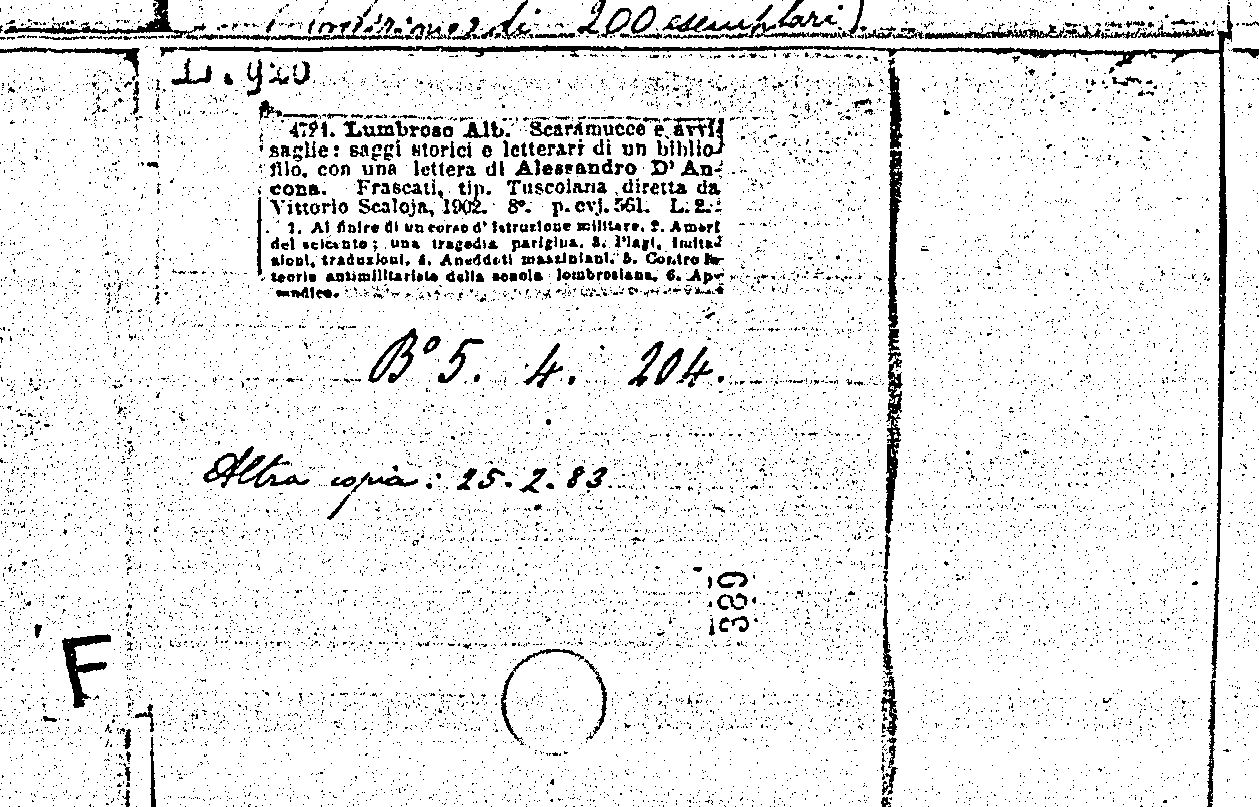 di 200 esemplari).
L. 920
4791. Lumbroso Alb. Scaramucce e avvi-
saglie: saggi storici e letterari di un biblio-
filo, con una lettera di Alessandro D'An-
cona. Frascati, tip. Tuscolana diretta da
Vittorio Scaloja, 1902. 8°. p. cvj. 561. L. 2.
1. Al finire di un corso d'istruzione militare. 2. Amori
del seicento; una tragedia parigina. 3. Plagi, imita-
zioni, traduzioni. 4. Aneddoti mazziniani. 5. Contro la
teoria antimilitarista della scuola lombrosiana. 6. Ap-
pendice.
B° 5. 4. 204.
Altra copia: 25.2.83
389
F